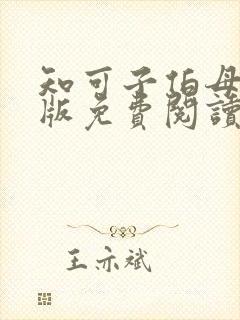 知可子伯母
版免費閱讀
王亦斌